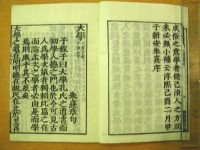 成俗之意學者修己治人之方則
未必無小補云淳熙己酉二月甲
子新安朱熹序
大學
朱熹章句
子程子曰大學孔氏之遺書而
初學入德之門也於今可見古
人為學次第者獨賴此篇之存
而論孟次之學者必由是而學
焉則庶乎其不差矣
大學之道在明明德在親民在